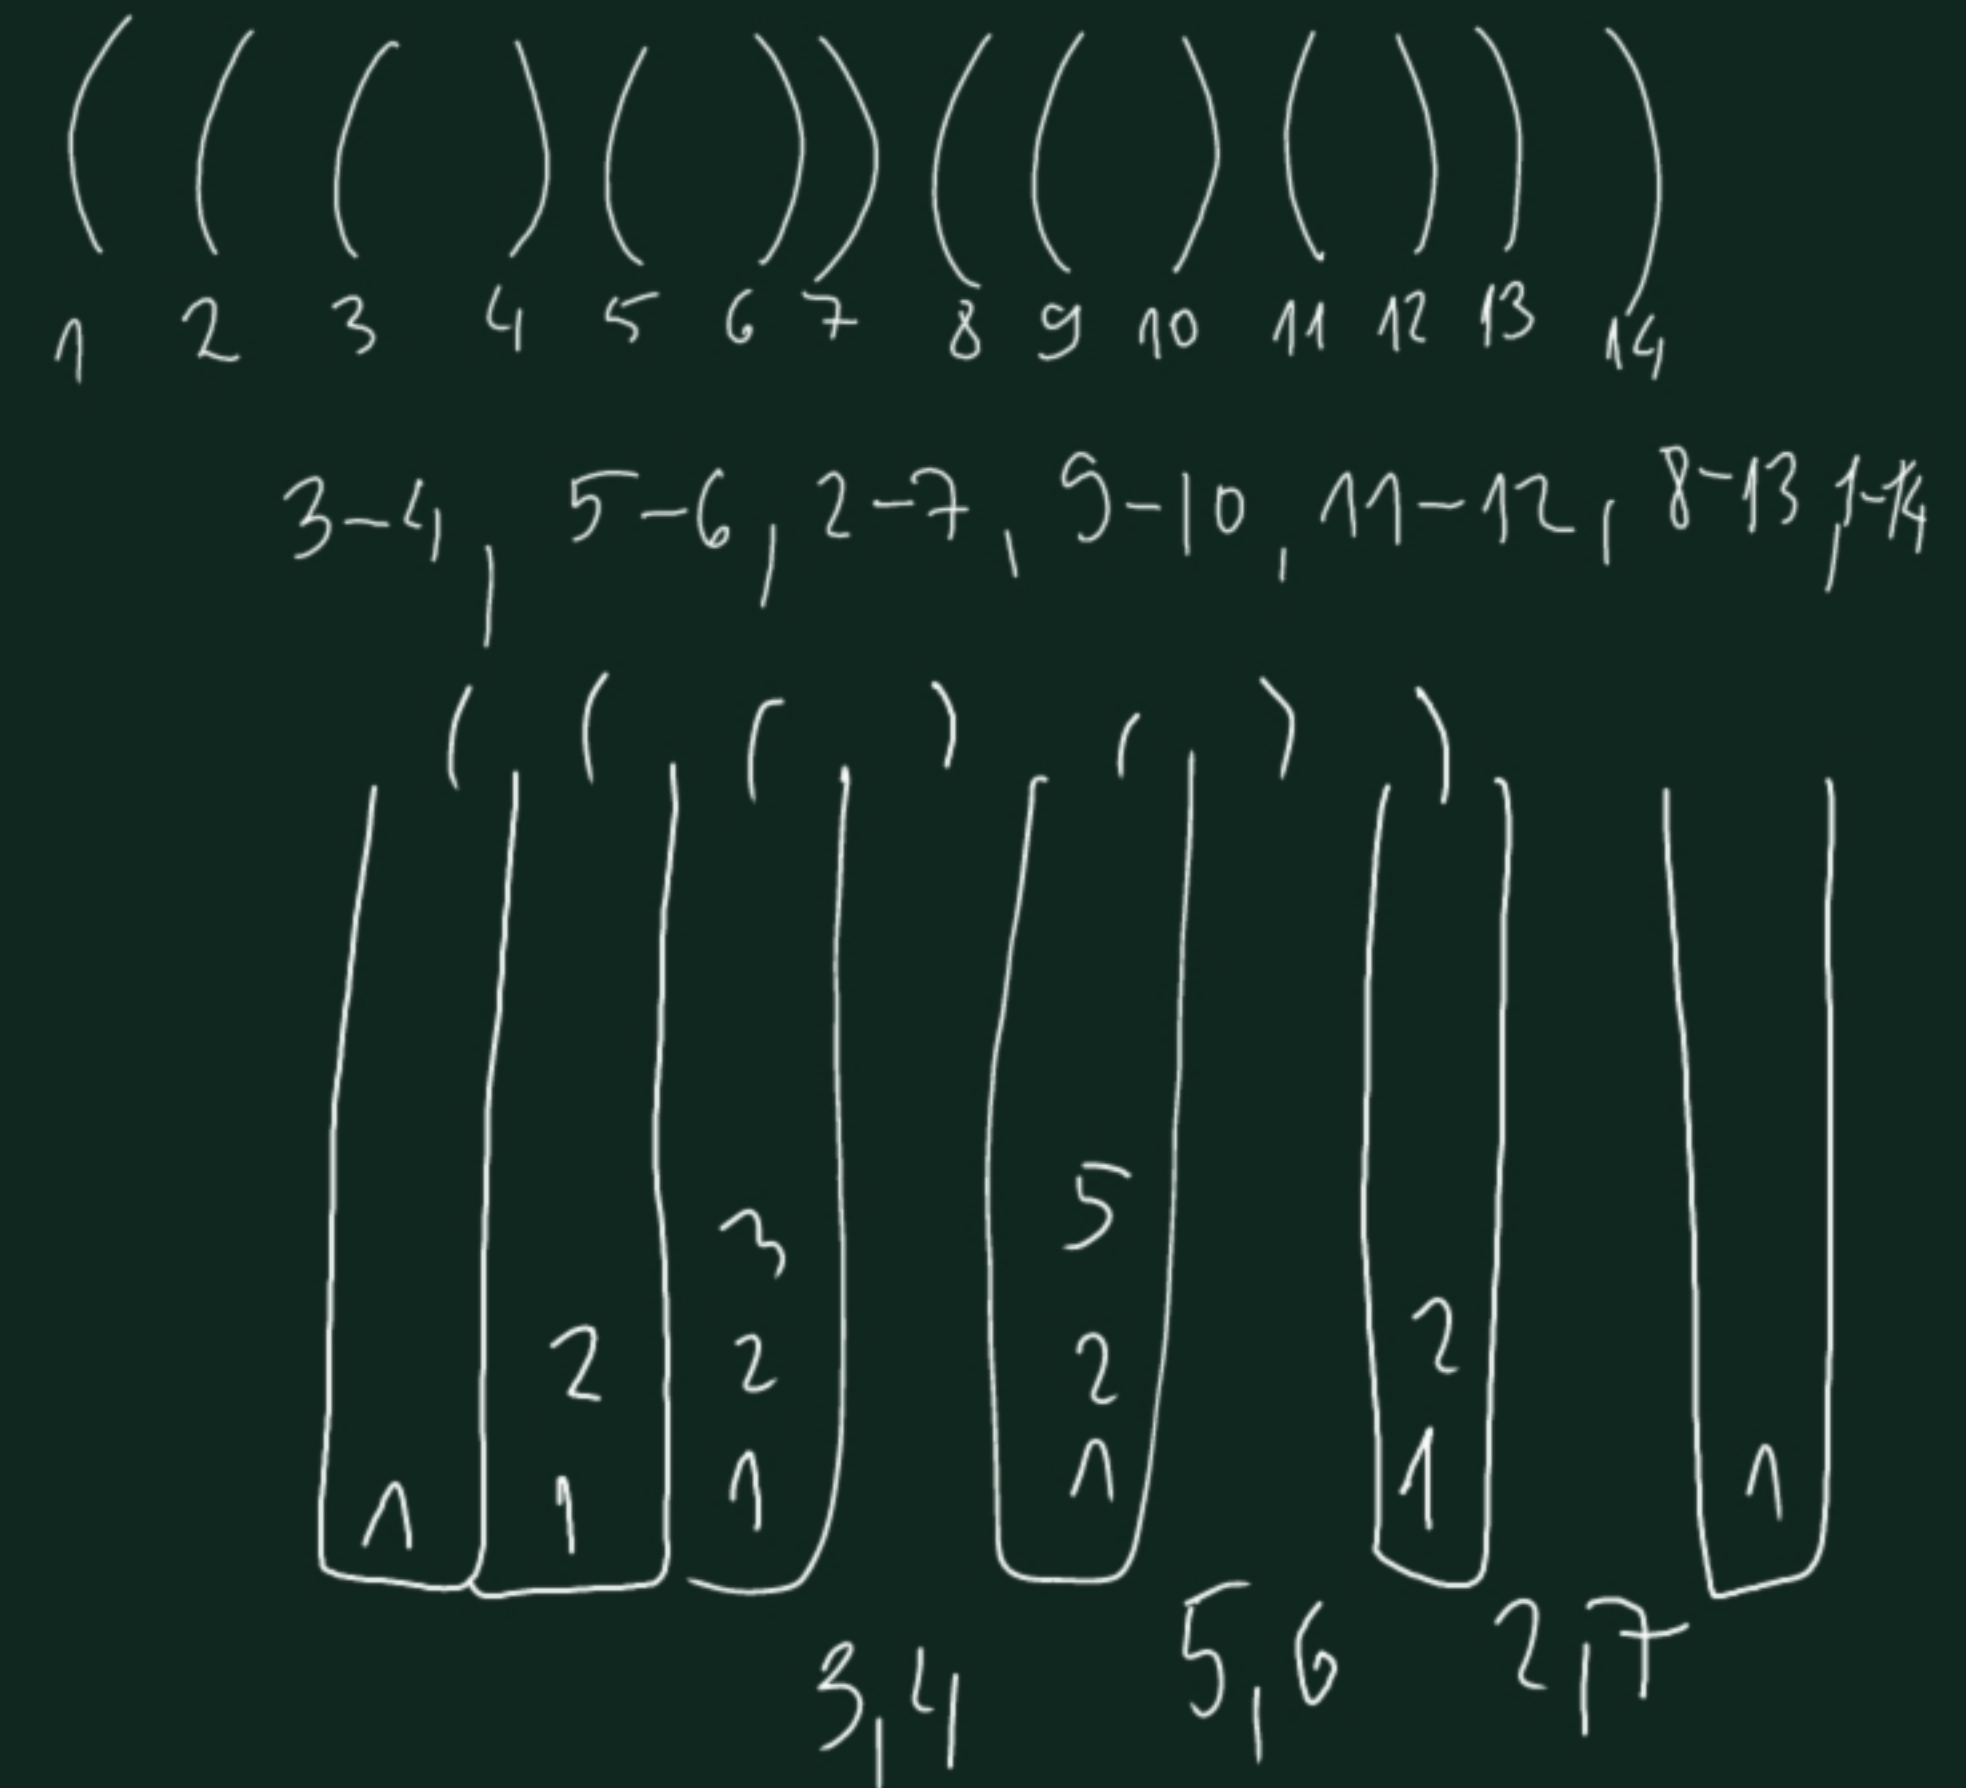 ( ( ( ) ( ) ) ( ( ) ( ) ) )
1 2 3 4 5 6 7 8 9 10 11 12 13 14
3-4, 5-6, 2-7, 9-10, 11-12, 8-13, 1-14
( ( ( ) ( ) )
3 5
2 2 2 2
1 1 1 1 1 1
3,4 5,6 2,7